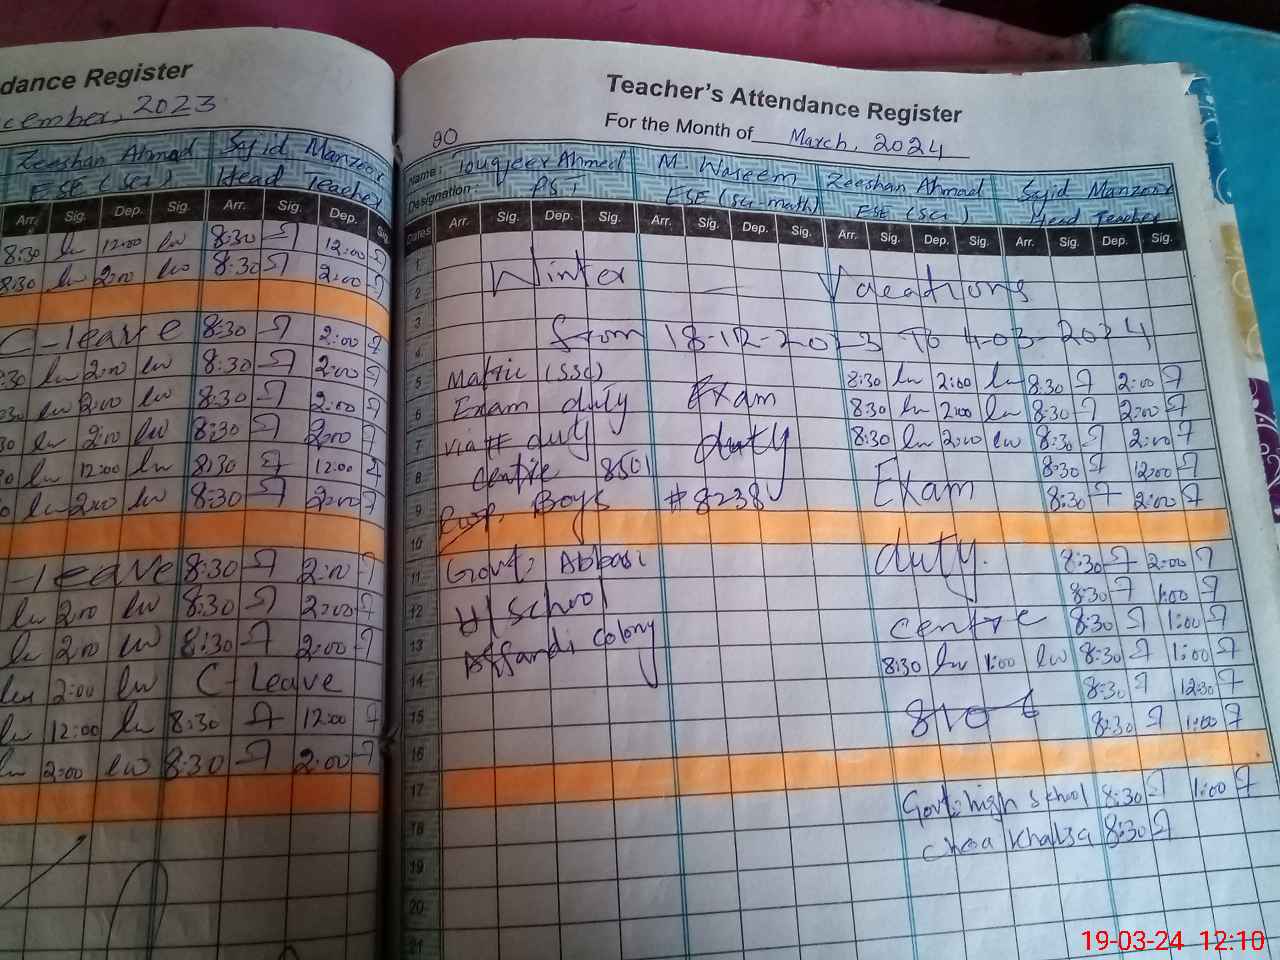 dance Register
cember, 2023
Zeeshan Ahmad Sajid Manzoor
ESE (Sci) Head Teacher
Arr. Sig. Dep. Sig. Arr. Sig. Dep. Sig
8:30 12:00 8:30 12:00
8:30 2:00 8:30 2:00
C-leave 8:30 2:00
:30 2:00 8:30 2:00
:30 2:00 8:30 2:00
30 2:00 8:30 2:00
30 12:00 8:30 12:00
2:00 8:30 2:00
-leave 8:30 2:00
2:00 8:30 2:00
2:00 8:30 2:00
2:00 C-Leave
12:00 8:30 12:00
2:00 8:30 2:00
Teacher's Attendance Register
For the Month of March, 2024
90
Name: Touqeer Ahmed M. Waseem Zeeshan Ahmad Sajid Manzoor
Designation: PST ESE (Sci-math) ESE (Sci) Head Teacher
Dates Arr. Sig. Dep. Sig. Arr. Sig. Dep. Sig. Arr. Sig. Dep. Sig. Arr. Sig. Dep. Sig.
1
2 Winter Vacations
3
4 from 18-12-2023 To 4-03-2024
5 Matric (SSC) 8:30 2:00 8:30 2:00
6 Exam duty Exam 8:30 2:00 8:30 2:00
7 duty duty 8:30 2:00 8:30 2:00
8 Centre 850 8:30 12:00
9 Boys #8238 Exam 8:30 2:00
10
11 Govt: Abbasi duty. 8:30 2:00
12 H/ School 8:30 1:00
13 Affandi colony Centre 8:30 1:00
14 8:30 1:00 8:30 1:00
15 8:30 12:30
16 8:30 1:00
17
18 Govt: high School 8:30 1:00
19 Choa Khalsa 8:30
20
21
19-03-24 12:10